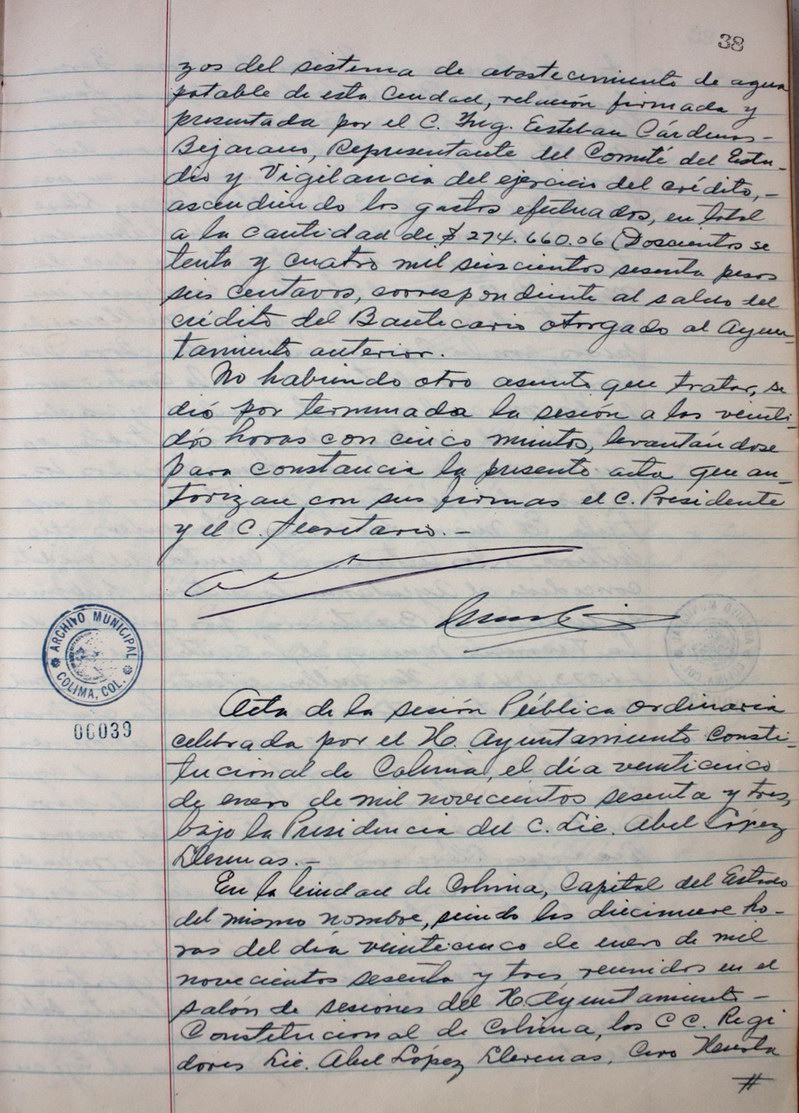 38
zos del sistema de abastecimiento de agua
potable de esta Ciudad, relación firmada y
presentada por el C. Ing. Esteban Cárdenas-
Bejarano, Representante del Comité del Estu-
dio y Vigilancia del ejercicio del crédito,-
ascendiendo los gastos efectuados, en total
a la cantidad de $ 274.660.06 (Doscientos se
tenta y cuatro mil seiscientos sesenta pesos
seis centavos, correspondiente al saldo del
crédito del Bantecario otorgado al Ayun-
tamiento anterior.
No habiendo otro asunto que tratar, se
dió por terminada la sesión a las veinti-
dós horas con cinco minutos, levantándose
para constancia la presente acta que au-
torizan con sus firmas el C. Presidente
y el C. Secretario.-
ARCHIVO MUNICIPAL
COLIMA, COL.
00039
Acta de la sesión Pública ordinaria
celebrada por el H. Ayuntamiento Consti-
tucional de Colima, el día veinticinco
de enero de mil novecientos sesenta y tres,
bajo la Presidencia del C. Lic. Abel López
Llerenas.-
En la Ciudad de Colima, Capital del Estado
del mismo nombre, siendo las diecinueve ho-
ras del día veinticinco de enero de mil
novecientos sesenta y tres reunidos en el
salón de sesiones del H Ayuntamiento-
Constitucional de Colima, los CC. Regi
dores Lic. Abel López Llerenas, Ciro Hurtado
#